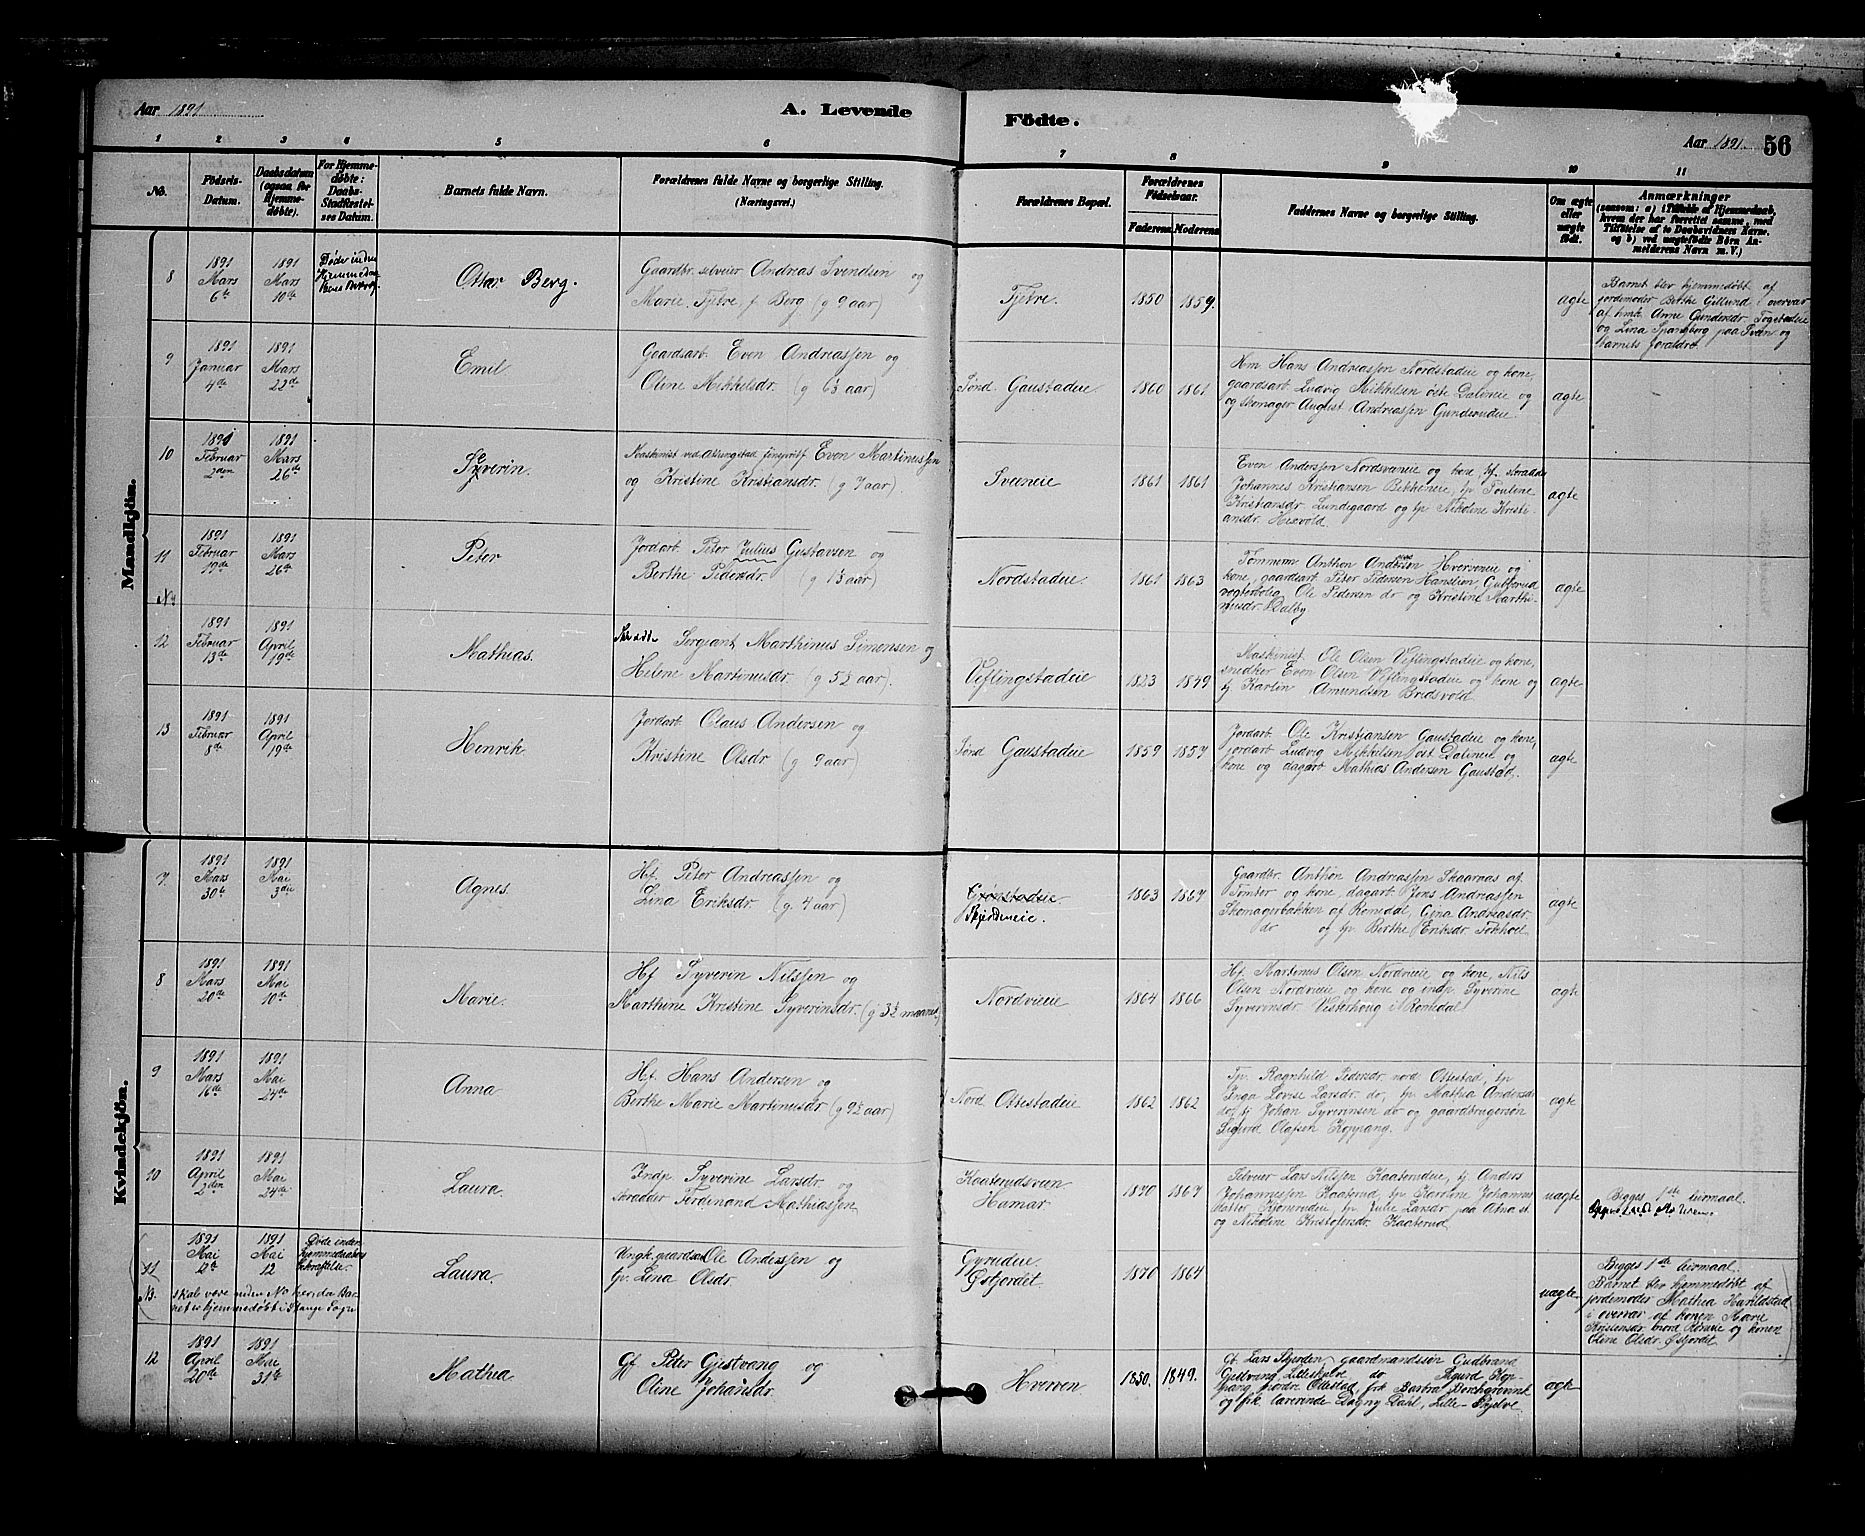 Aar 1891
A. Levende
Födte.
Aar 1891.
56
1 2 3 4 5 6 7 8 9 10 11
No.
Födsels-Datum.
Daabsdatum (ogsaa for Hjemmedøbte).
For Hjemmedøbte: Daabs-Stadfæstelses Datum.
Barnets fulde Navn.
Forældrenes fulde Navne og borgerlige Stilling. (Næringsvei.)
Forældrenes Bopæl.
Forældrenes Födselsaar.
Faderens Moderens
Faddernes Navne og borgerlige Stilling.
Om ægte eller uægte födt.
Anmærkninger
(saasom: a) i Tilfælde af Hjemmedaab, hvem der har forrettet samme, med Tilföielse af to Daabsvidners Navne, og b) ved uægtefödte Börn Anmelderens Navn m. V.)
Mandkjön.
8
1891 Mars 6te
1891 Mars 10de
Døde inden
Ottar Berg.
Gaardbr. selveier Andreas Svendsen og
Marie Tjetre f. Berg (g 9 aar)
Tjetre.
1850 1859.
ægte
Barnet blev hjemmedøbt af
jordemoder Berthe Gillund i overvær
af hmk. Anne Gundersdr.
og Lina Spangberg paa Sveen og
barnets forældre.
9
1891 Januar 4de
1891 Mars 22de
Emil
Gaardsarb. Even Andreassen og
Oline Mikkelsdr. (g 6½ aar)
Sønd. Gaustadeie.
1860 1861
Hm Hans Andreassen Nordstadeie og kone,
gaardsarb. Ludvig Mikkelsen øste Dalineie og
og skomager August Andreassen Gunderudeie.
ægte
10
1891 Februar 2den
1891 Mars 26de
Syverin.
Maskinist ved Even Martinussen
og Kristine Kristiansdr. (g 7 aar)
Sveeneie
1861 1861
Even Anderssen Nordsveneie og kone,
Johannes Kristiansen Bekkeneie, tp Pouline
Kristiansdr. Lundegaard og tp. Nikoline Kristi-
ansdr. Hexvold
ægte
11
1891 Februar 19de
1891 Mars 26de
Peter
Jordarb. Peter Julius Gustavsen og
Berthe Pedersdr. (g 1½ aar)
Nordstadeie.
1861 1863
Tømmerm. Anthon Andersen Hverveneie og
kone, gaardsarb. Peter Pedersen Hanslien Gubberud
vogterbolig Ole Pedersen do og Kristine Marthi-
nusdr. Dalby
ægte
12
1891 Februar 13de
1891 April 19de
Mathias.
Sergeant Marthinus Simensen og
Helene Martinusdr. (g 5½ aar).
Veflingstadeie
1823 1849
Maskinist Ole Olsen Veflingstadeie og kone,
snedker Even Olsen Veflingstadeie og kone og
tj Karlin Amundsen Bridsvold
ægte
13
1891 Februar 8de
1891 April 19de
Henrik
Jordarb. Olaus Andersen og
Kristine Olsdr (g 9 aar)
Sønd Gaustadeie
1859 1857
Jordarb. Ole Kristiansen Gaustadeie og kone,
jordarb. Ludvig Mikkelsen øst Dalineie og
kone og dagarb. Mathias Andersen Gaustad.
ægte
Kvindekjön.
7
1891 Mars 30te
1891 Mai 3die
Agnes.
Hf. Peter Andreassen og
Lina Eriksdr. (g. 4 aar)
Grønstadeie
Skjerdeneie.
1863 1867
Gaardbr. Anthon Andreassen Skaarnas af
Tomter og kone, dagarb. Jens Andreassen
Skomagerbakken af Romedal, Gina Andreasdr.
do og tp. Berthe Eriksdr Tokhol
ægte
8
1891 Mars 20de
1891 Mai 10de
Marie.
Hf. Syverin Nilssen og
Marthine Kristine Syverinsdr. (g 3½ maaned)
Nordvieie
1864 1866
Hf. Martinus Olsen Nordvieie og kone, Nils
Olsen Nordvieie og kone og inds Syverine
Syverinsdr. Vesterhoug i Romedal
ægte
9
1891 Mars 16de
1891 Mai 24de
Anna
Hf. Hans Andersen og
Berthe Marie Martinusdr (g 9½ aar)
Nord Ottestadeie
1862 1862
Tp. Ragnhild Pedersdr. nord Ottestad, tp
Inga Lovise Larsdr. do, tp. Mathea Andersdr
do, tj Johan Syverinsen do og gaardbrugersøn
Sigurd Olafsen Koppang.
ægte
10
1891 April 2den
1891 Mai 24de
Laura.
Indp Syverine Larsdr. og
skrædder Ferdinand Mathiassen
Kaaterudsveen
Hamar
1870 1867
Selveier Lars Nilssen Kaaterudeie, tj Anders
Johannessen Kaaterud, tp Karline Johannes
datter Kjemrudeie, tp. Julie Larsdr paa Atna st
og Nikoline Kristofersdr. Kaaterud
uægte
Begges 1ste leirmaal.
11
1891 Mai 12te
1891 Mai 12
Døde inden
hjemmedaabens
bekræftelse.
Laura.
Ungk. gaardsarb Ole Anderssen og
tp. Lina Olsdr
Gyrudeie
Østjordet
1870 1864
uægte
Begges 1ste leirmaal.
Barnet blev hjemmedøbt af
jordemoder Mathea Harildstad
i overvær af konen Marie
Kristensdr nord Kroneie og konen
Oline Olsdr. Østjordet
NB. skal være uden No her, da Bar-
net er hjemmedøbt i Stange Sogn
12
1891 April 20de
1891 Mai 31te
Mathea
Gf Peter Gjestvang og
Oline Johansdr.
Hverven
1850. 1849.
Gf. Lars Skjerden, gaardmandssøn Gudbrand
Gjestvang Lilleskjelve do Sigurd Kop-
pang nordre Ottestad, frk Barbra Borchgrevink
og frk. lærerinde Dagny Dahl, Lille-Skjelve
ægte